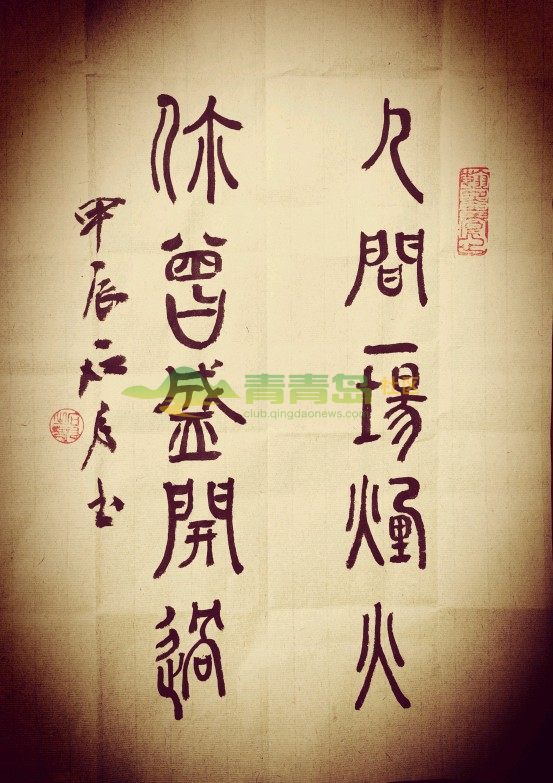 人間一場煙火
你曾盛開過
甲辰 月书
青青岛社区
club.qingdaonews.com